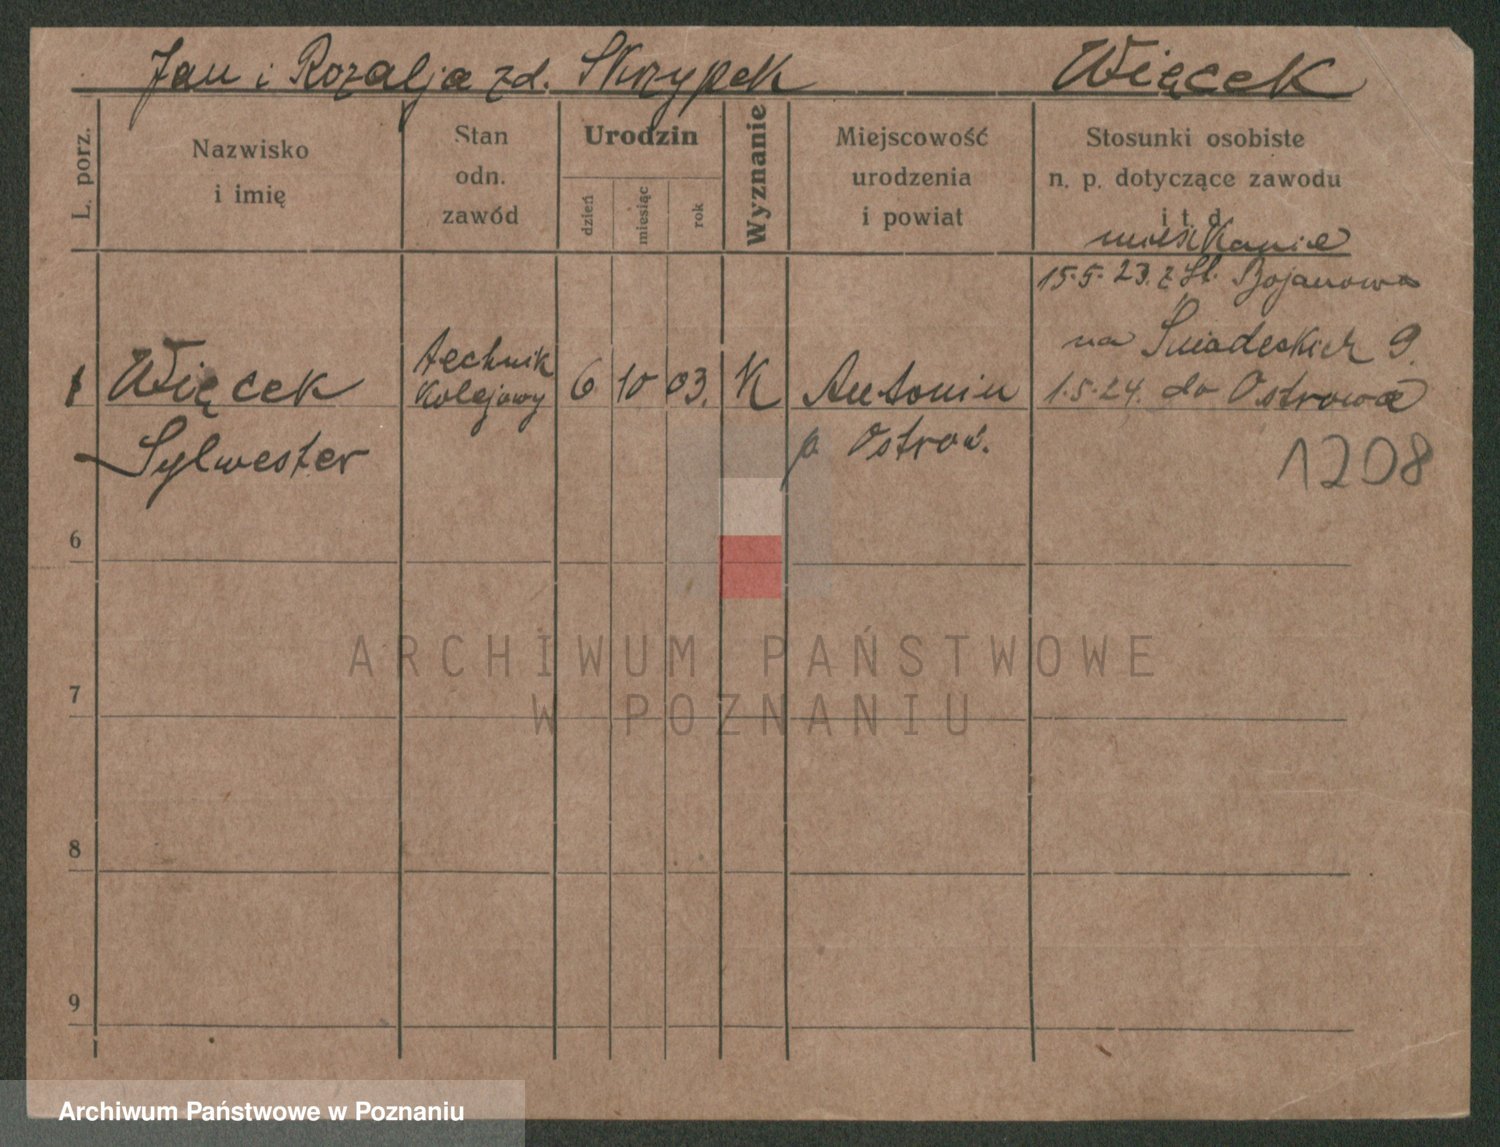 Jan i Rozalja zd. Skrzypek Więcek
L. porz.
Nazwisko
i imię
Stan
odn.
zawód
Urodzin
dzień
miesiąc
rok
Wyznanie
Miejscowość
urodzenia
i powiat
Stosunki osobiste
n. p. dotyczące zawodu
i t. d.
mieszkanie
15.5.23. z St. Bojanowa
na Śniadeckich 9.
1 Więcek technik kolejowy 6 10 03. K Antonin 1.5.24. do Ostrowa
Sylwester p Ostrow.
1208
6
7
8
9
ARCHIWUM PAŃSTWOWE
W POZNANIU
Archiwum Państwowe w Poznaniu